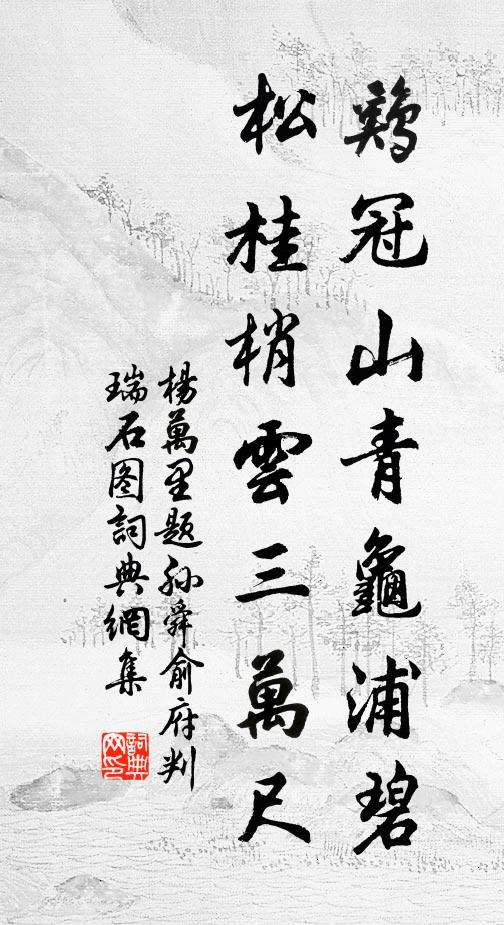 鷄冠山青龜浦碧
松桂梢雲三萬尺
楊萬里題孫舜俞府判
瑞石图詞典網集
詞典网印